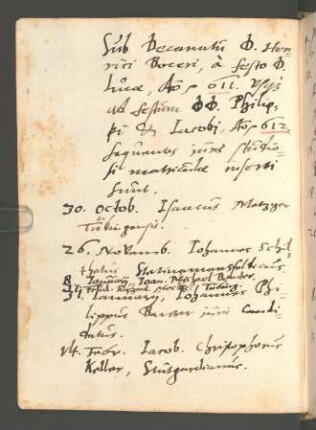 Sub Decanatu D. Hen-
rici Boceri, à festo D.
Lucae, Aõ 611. Usq;
ad festum DD. Philip-
pi & Iacobi, Aõ 612.
sequentes juris studio-
si matriculae inserti
sunt.
30. Octob. Isaacus Metzger
Tübingensis.
26. Novemb. Iohannes
8. Januarij, Joan. Michael
31. Ianuarij, Iohannes Phi-
lippus juris Candi-
datus.
Febr. Iacob. Christophorus
Keller, Stutgardianus.